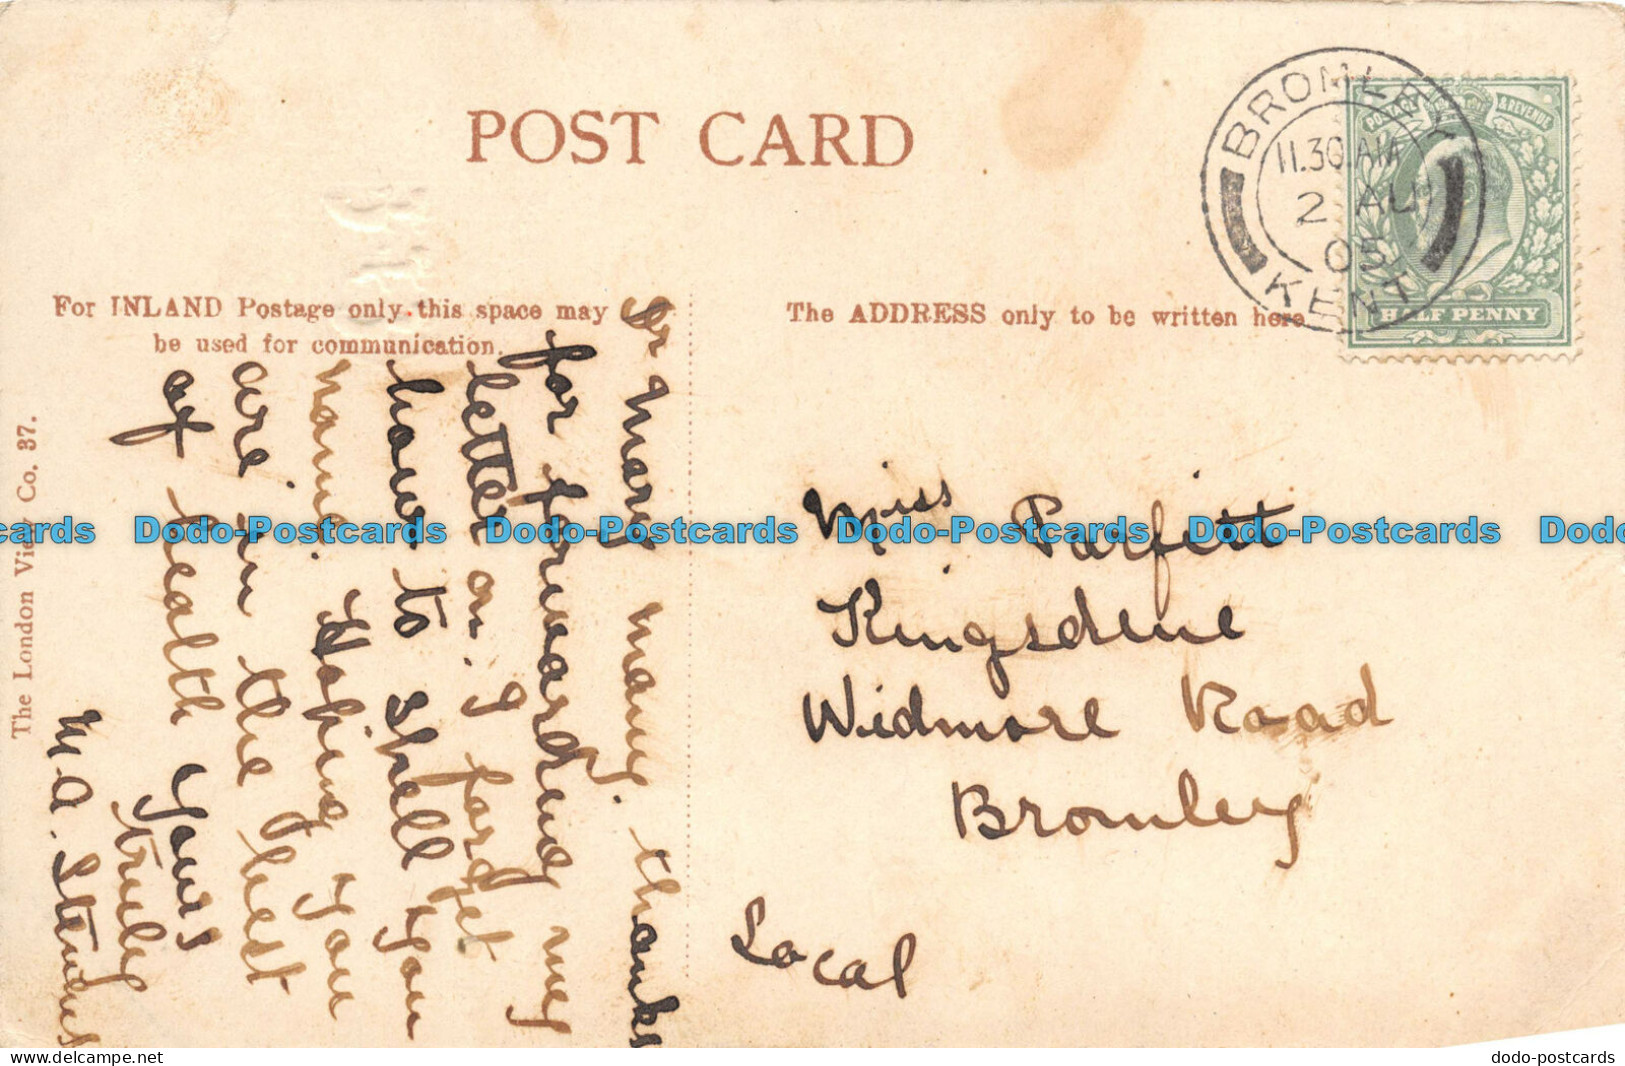 POST CARD
BROMLEY
11.30.AM
2 AU
05
KENT
POSTAGE & REVENUE
HALF PENNY
For INLAND Postage only this space may
be used for communication.
The ADDRESS only to be written here
The London View Co. 37.
Dr Mary many thanks
for forwarding my
letter on. I forget
how to spell you
name. Hoping you
are in the best
of health Yours
truly
M.A.
Miss Parfitt
Kingsdene
Widmore Road
Bromley
Local
Dodo-Postcards Dodo-Postcards Dodo-Postcards Dodo-Postcards
delcampe.net
dodo-postcards